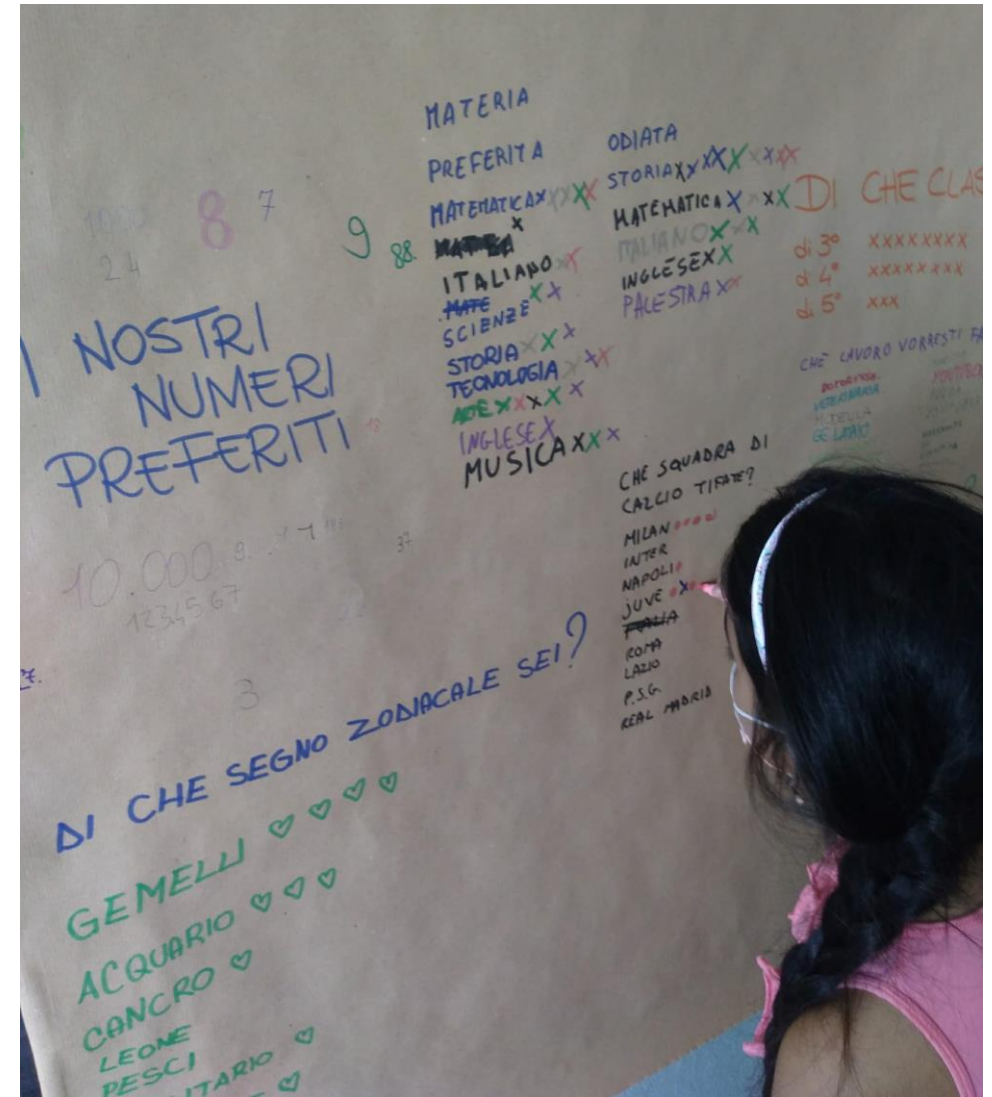 8 7
24
9 88.
I NOSTRI
NUMERI
PREFERITI
18
10.000
37
1234567
3
7.
MATERIA
PREFERITA
MATEMATICA X X X X X
X
ITALIANO X X
MATE
SCIENZE X X
STORIA X X X
TECNOLOGIA X X X
ARTE X X X X X
INGLESE X
MUSICA X X X
ODIATA
STORIA X X X X X X X X
MATEMATICA X X X X
ITALIANO X X X
INGLESE X X
PALESTRA X X
DI CHE CLAS
di 3° XXXXXXXX
di 4° XXXXXXXX
di 5° XXX
CHE LAVORO VORRESTI FA
DOTORESSA
VETERINARIA
GELATAIO
YOUTUBE
CHE SQUADRA DI
CALCIO TIFATE?
MILAN
INTER
NAPOLI
JUVE X
ITALIA
ROMA
LAZIO
P.S.G.
REAL MADRID
DI CHE SEGNO ZODIACALE SEI?
GEMELLI
ACQUARIO
CANCRO
LEONE
PESCI
ITARIO